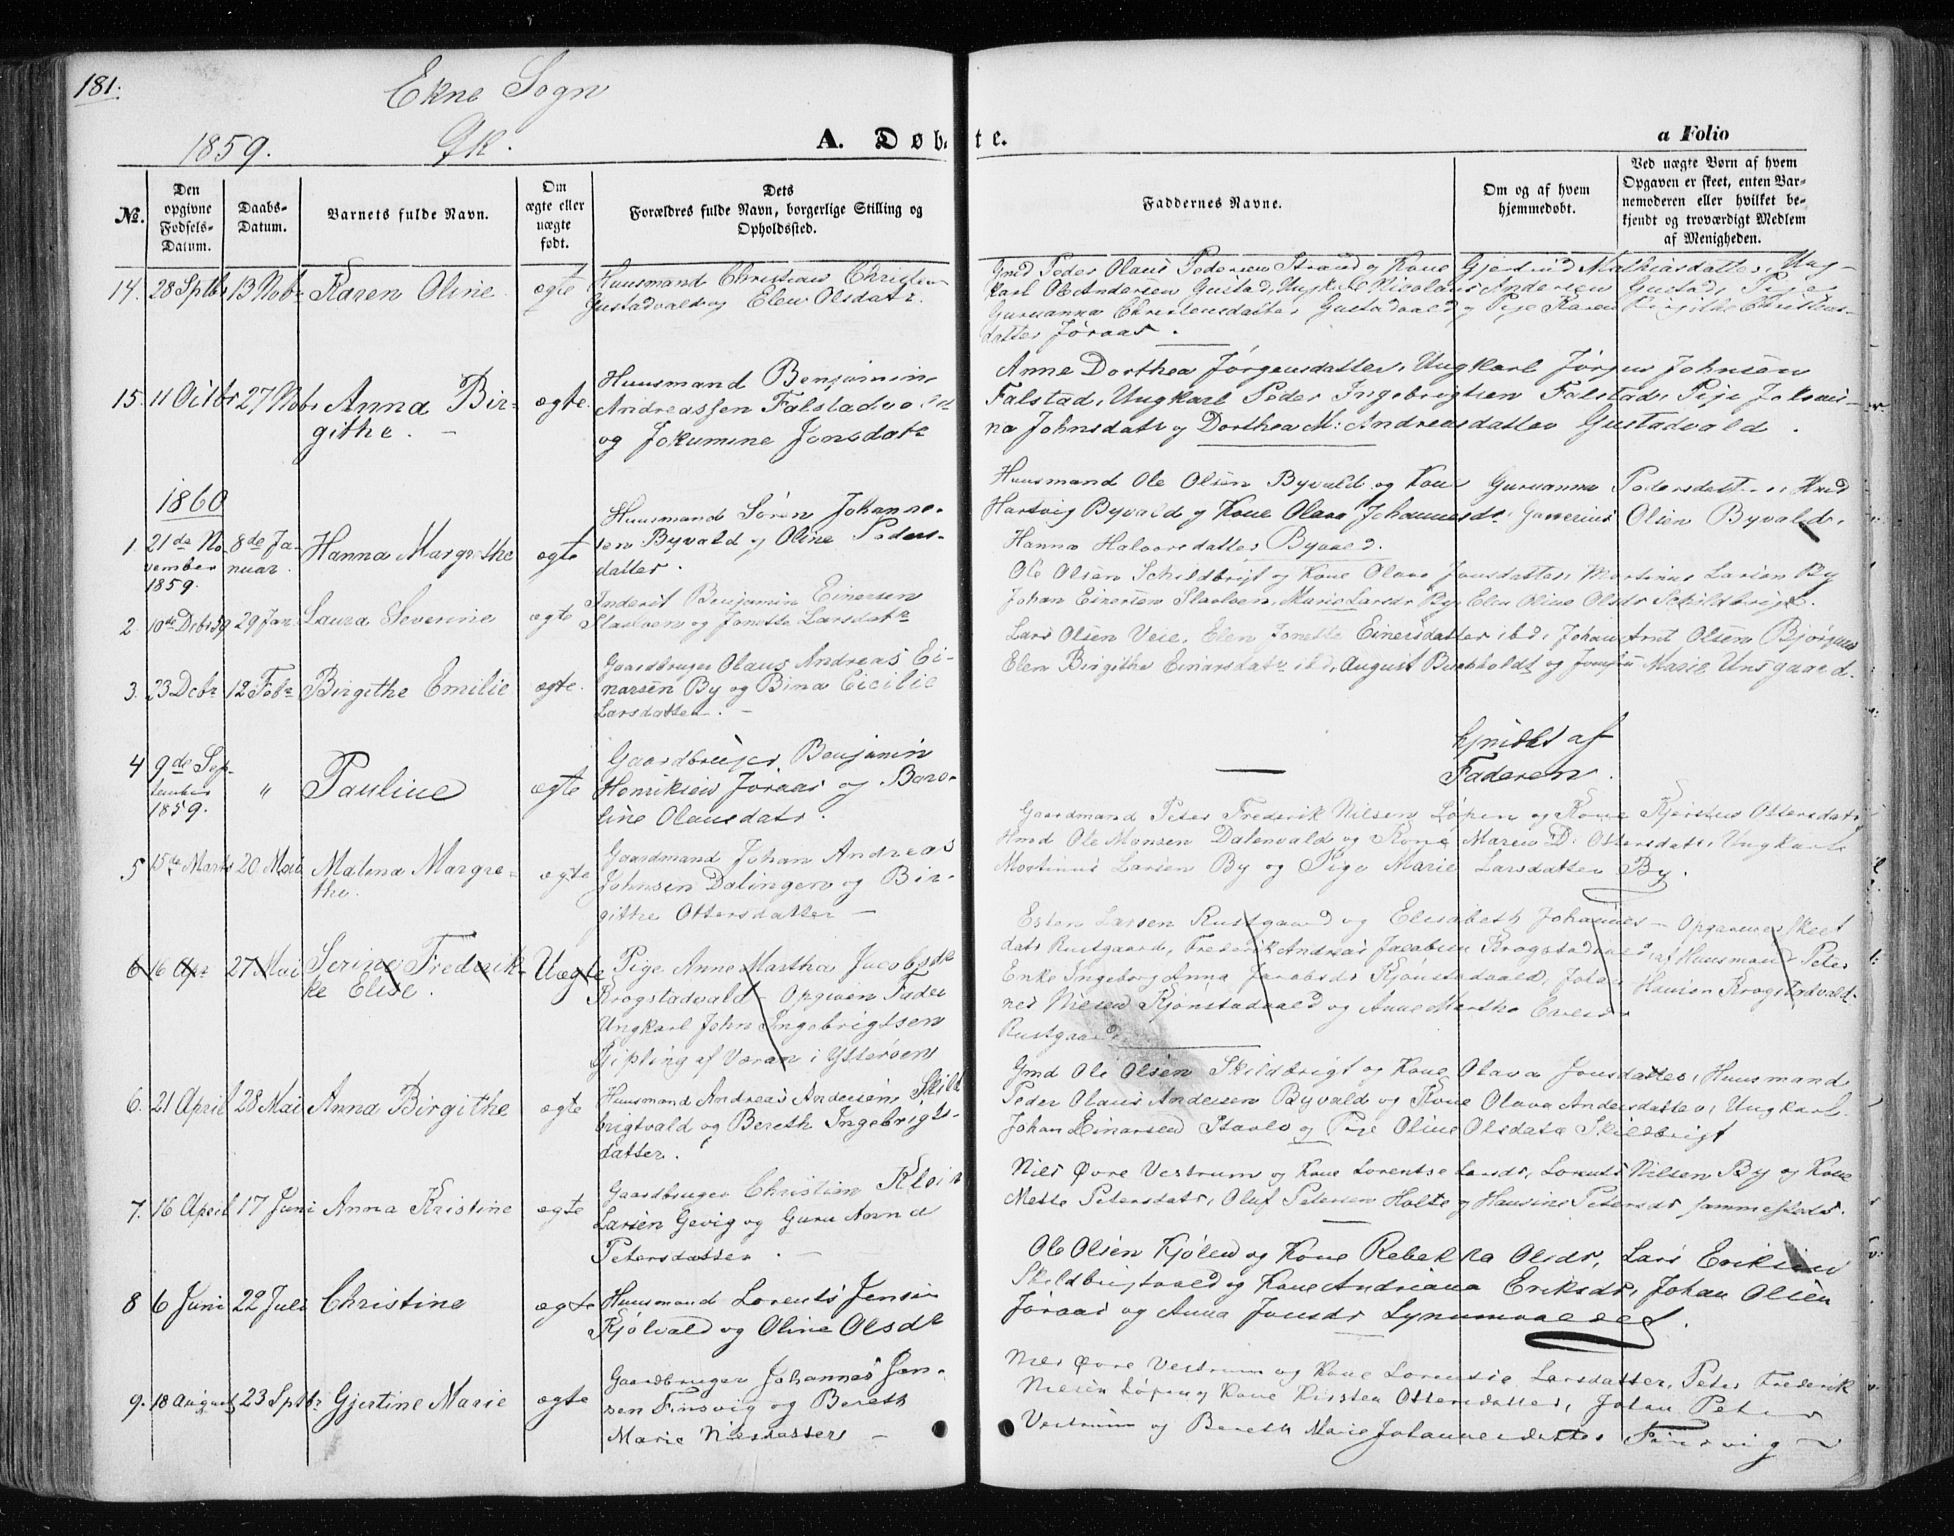 181.
Ekne Sogn
1859. Qk.
A. Døb te.
a Folio
No.
Den opgivne Fødsels-Datum.
Daabs-Datum.
Barnets fulde Navn.
Om ægte eller uægte født.
Dets
Forældres fulde Navn, borgerlige Stilling og
Opholdssted.
Faddernes Navne.
Om og af hvem
hjemmedøbt.
Ved uægte Børn af hvem
Opgaven er skeet, enten Bar-
nemoderen eller hvilket be-
kjendt og troværdigt Medlem
af Menigheden.
14. 28 Septbr 13 Nobr Karen Oline ægte
Huusmand Christian Christen
Gustadvald og Elen Olsdatr
Gmd Peder Olaus Pedersen Strand og Kone Gjertrud Mathiasdatter, Ung-
karl Ole Andersen Gustad, Ungkarl Nicolaus Andersen Gustad, Pige
Guruanna Christensdatter Gustadvald og Pige Karen Birgithe Christens-
datter Jøraas.
15. 11 Octbr 27 Nobr Anna Bir-
githe. ægte.
Huusmand Benjamin
Andreassen Falstadvald
og Jokumine Jonsdatr
Anne Dorthea Jørgensdatter, Ungkarl Jørgen Johnsen
Falstad, Ungkarl Peder Ingebrigtsen Falstad, Pige Jokumi-
na Johnsdatr og Dorthea M: Andreasdatter Gustadvald.
1860
1. 21de No-
vember
1859. 8de Ja-
nuar. Hanna Margrethe ægte
Huusmand Søren Johanne-
sen Byvald og Oline Peders-
datter.
Huusmand Ole Olsen Byvald og Kone Guruanna Pedersdatter, Hmd
Hartvig Byvald og Kone Olava Johannesdr, Olsen Byvald,
Hanna Halvorsdatter Byvald.
2. 10de Debr 59 29 Jan Laura Severine ægte
Inderst Benjamin Einersen
Slaolven og Jonetta Larsdatr
Ole Olsen Schildbrigt og Kone Olava Jonsdatter, Martinus Larsen By
Johan Einersen Slaolven, Marie Larsdr By, Elen Oline Olsdr Schildbrigt.
3. 23 Debr 12 Febr Birgithe Emilie ægte.
Gaardbruger Olaus Andreas Ei-
narsen By og Bina Cicilie
Larsdatter. —
Lars Olsen Veie, Elen Jonetta Einersdatter ibd, Johan Arnt Olsen
Elen Birgithe Einarsdatr ibd, August Buchholdt og Jomfru Marie Unsgaard.
4 9de Sep-
tember
1859. " Pauline ægte
Gaardbruger Benjamin
Henriksen Jøraas og Bero-
line Olausdatr.
—
hjmdbt af
Faderen.
5 15de Marts 20 Mai Malena Margre-
the. ægte
Gaardmand Johan Andreas
Johnsen Dalingen og Bir-
githe Ottersdatter —
Gaardmand Peter Frederik Nilsen Løpen og Kone Kjersten Ottersdatr
Hmd Ole Monsen Dalenvald og Kone Maren D: Ottersdatr, Ungkarl
Mortinus Larsen By og Pige Marie Larsdatter By.
6 16 Apr 27 Mai Serine Frederik-
ke Elise. Uægte
Pige Anne Martha Jacobsdr
Krogstadvald — Opgiven Fader
Ungkarl John Ingebrigtsen
Kipling af Væran i Ytterøen
Esten Larsen Rustgaard og Elisabeth Johannes-
datr Rustgaard, Frederik Andreas Jacobsen Krogstadvald,
Enke Ingeborg Anna Jacobsdr Kjønstadvald, Johan-
nes Nielsen Kjønstadvald og Anne Martha
Rustgaard
Opgaven skeet
af Huusmand Peter
Hansen Krogstadvald.
6. 21 April 28 Mai Anna Birgithe ægte
Huusmand Andreas Andersen Skild
brigtvald og Bereth Ingebrigts-
datter.
Gmd Ole Olsen Skildbrigt og Kone Olava Jonsdatter, Huusmand
Peder Olaus Andersen Byvald og Kone Olava Andersdatter, Ungkarl
Johan Einarsen Slaolv og Pige Oline Olsdatr Skildbrigt
7. 16 April 17 Juni Anna Kristine ægte
Gaardbruger Christian Klein
Larsen Gevig og Guru Anna
Petersdatter. —
Nils Øvre Vestrum og Kone Lorentse Larsdr, Lorents Nilsen By og Kone
Mette Petersdatr, Oluf Petersen Holte og Hansine Petersdr sammesteds.
8 6 Juni 22 Juli Christine ægte
Huusmand Lorents Jensen
Kjølvald og Oline Olsdr
Ole Olsen Kjølen og Kone Rebekka Olsdr, Lars Eriksen
Skildbrigtvald og Kone Andriana Eriksdr, Johan Olsen
Jøraas og Anna Jonsdr Lynumvald.
9. 18 August 23 Septbr Gjertine Marie ægte
Gaardbruger Johannes Jan-
sen Finsvig og Bereth
Marie Nilsdatter —
Nils Øvre Vestrum og Kone Lorentse Larsdatter, Peter Frederik
Nielsen Løpen og Kone Kirsten Ottersdatter, Johan Peter
Vestrum og Bereth Marie Johannesdatter Finsvig